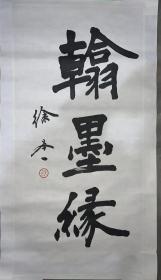 翰墨缘
徐